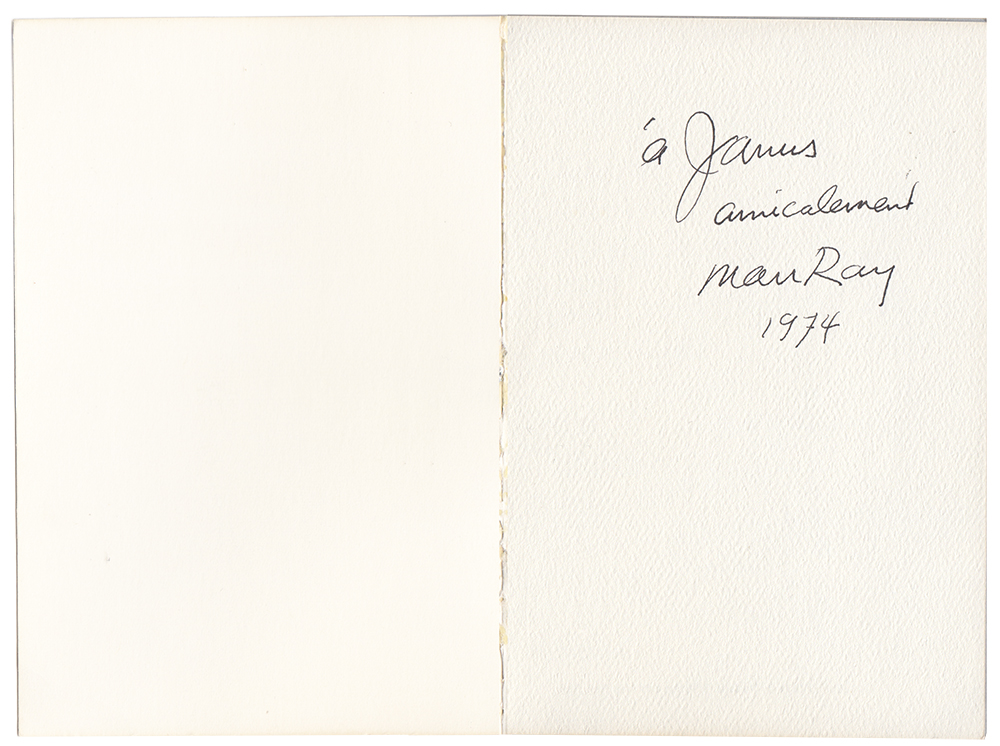 à Janus
amicalement
Man Ray
1974